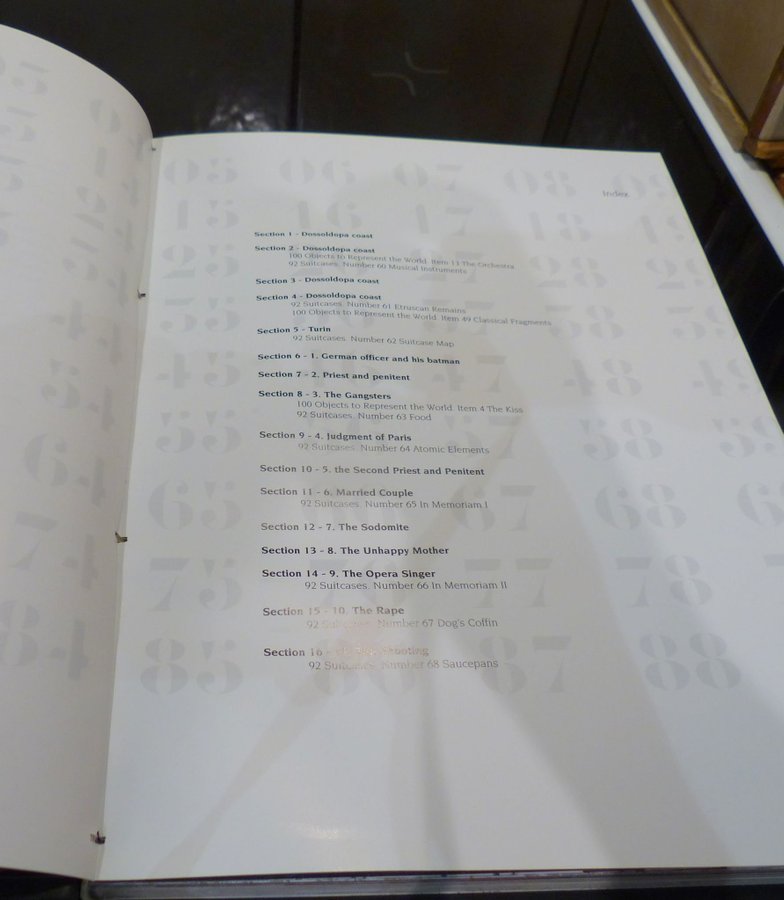 Index
Section 1 - Dossoldopa coast
Section 2 - Dossoldopa coast
100 Objects to Represent the World. Item 13 The Orchestra
92 Suitcases. Number 60 Musical Instruments
Section 3 - Dossoldopa coast
Section 4 - Dossoldopa coast
92 Suitcases. Number 61 Etruscan Remains
100 Objects to Represent the World. Item 49 Classical Fragments
Section 5 - Turin
92 Suitcases. Number 62 Suitcase Map
Section 6 - 1. German officer and his batman
Section 7 - 2. Priest and penitent
Section 8 - 3. The Gangsters
100 Objects to Represent the World. Item 4 The Kiss
92 Suitcases. Number 63 Food
Section 9 - 4. Judgment of Paris
92 Suitcases. Number 64 Atomic Elements
Section 10 - 5. the Second Priest and Penitent
Section 11 - 6. Married Couple
92 Suitcases. Number 65 In Memoriam I
Section 12 - 7. The Sodomite
Section 13 - 8. The Unhappy Mother
Section 14 - 9. The Opera Singer
92 Suitcases. Number 66 In Memoriam II
Section 15 - 10. The Rape
92 Suitcases. Number 67 Dog's Coffin
Section 16 - Shooting
92 Suitcases. Number 68 Saucepans
05 06 07 08
15 16 17 18
25 28
58
45 47 48
55 57 58
65 67 68
75 77 78
85 86 87 88